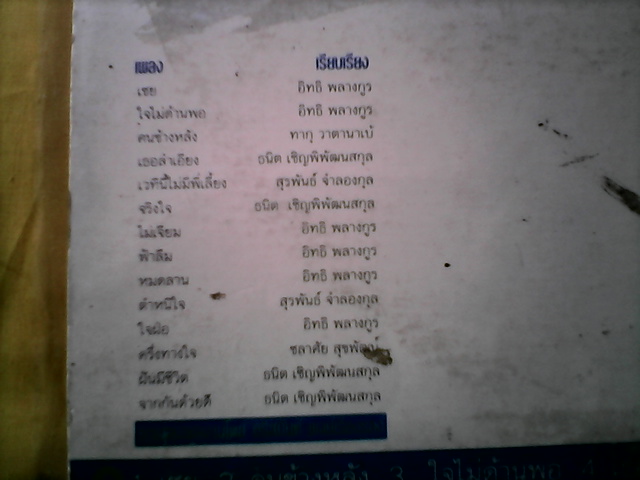 เพลง เรียบเรียง
เชย อิทธิ พลางกูร
ใจไม่ด้านพอ อิทธิ พลางกูร
คนข้างหลัง ทากุ วาตานาเบ้
เธอลำเอียง ธนิต เชิญพิพัฒนสกุล
เวทีนี้ไม่มีพี่เลี้ยง สุรพันธ์ จำลองกุล
จริงใจ ธนิต เชิญพิพัฒนสกุล
ไม่เจียม อิทธิ พลางกูร
ฟ้าลืม อิทธิ พลางกูร
หมดลาน อิทธิ พลางกูร
ตำหนิใจ สุรพันธ์ จำลองกุล
ใจฝ่อ อิทธิ พลางกูร
ครึ่งทางใจ ชลาศัย
ฝันมีชีวิต ธนิต เชิญพิพัฒนสกุล
จากกันด้วยดี ธนิต เชิญพิพัฒนสกุล
2 คนข้างหลัง 3 ใจไม่ด้านพอ 4